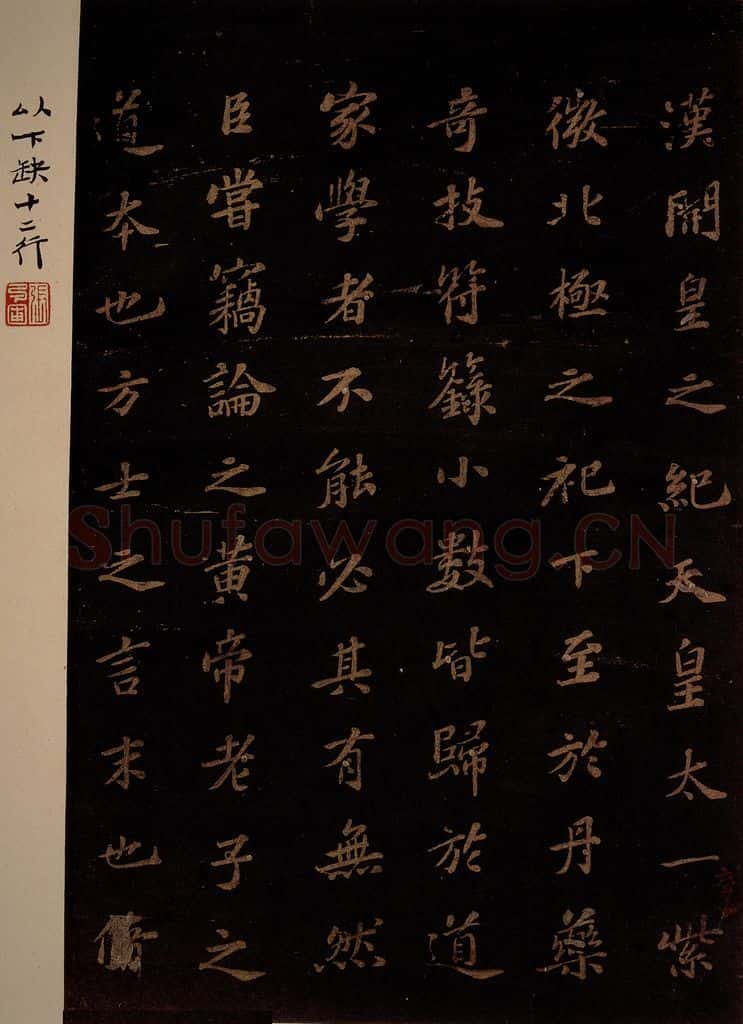 漢開皇之紀天皇太一紫
微北極之祀下至於丹藥
奇技符籙小數皆歸於道
家學者不能必其有無然
臣嘗竊論之黃帝老子之
道本也方士之言末也脩
以下缺十二行
Shufawang.CN